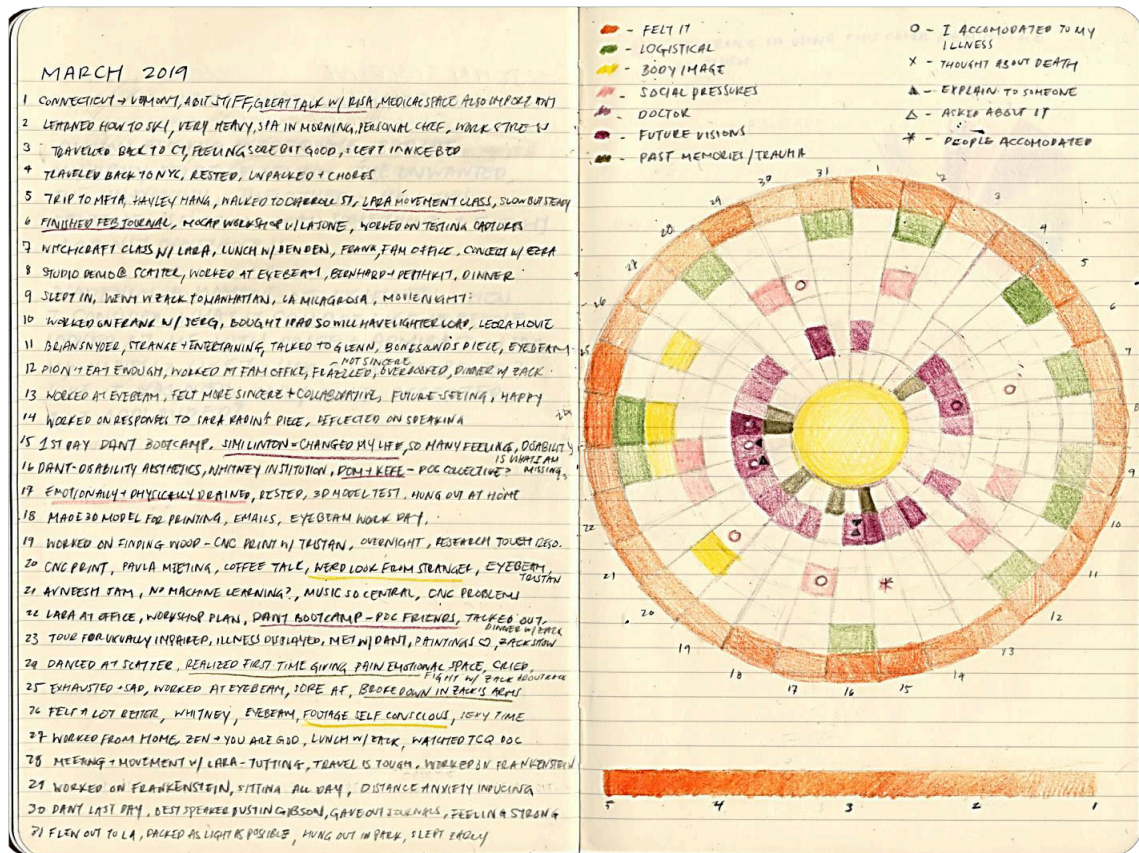 MARCH 2019
1 CONNECTICUT → VERMONT, A BIT STIFF, GREAT TALK W/ RISA, MEDICAL SPACE ALSO IMPORTANT
2 LEARNED HOW TO SKI, VERY HEAVY, SPA IN MORNING, PERSONAL CHEF, WORK STRESS
3 TRAVELLED BACK TO CT, FEELING SORE BUT GOOD, SLEPT IN NICE BED
4 TRAVELED BACK TO NYC, RESTED, UNPACKED + CHORES
5 TRIP TO META, HAYLEY HANG, WALKED TO CARROLL ST, LARA MOVEMENT CLASS, SLOW BUT STEADY
6 FINISHED FEB JOURNAL, MOCAP WORKSHOP W/ LAJUNE, WORKED ON TESTING CAPTURES
7 WITCHCRAFT CLASS W/ LARA, LUNCH W/ BENDEN, FRANK, FAM OFFICE, CONCERT W/ EZRA
8 STUDIO DEMO @ SCATTER, WORKED AT EYEBEAM, BERNHARD + DEPTHKIT, DINNER
9 SLEPT IN, WENT W ZACK TO MANHATTAN, LA MILAGROSA, MOVIE NIGHT
10 WORKED ON FRANK W/ SERG, BOUGHT IPAD SO WILL HAVE LIGHTER LOAD, LEORA MOVIE
11 BRIAN SNYDER, STRANGE + ENTERTAINING, TALKED TO GLENN, BONESOUNDS PIECE, EYEBEAM
NOT SINCERE
12 DIDN'T EAT ENOUGH, WORKED AT FAM OFFICE, FRAZZLED, OVERBOOKED, DINNER W/ ZACK
13 WORKED AT EYEBEAM, FELT MORE SINCERE + COLLABORATIVE, FUTURE SEEING, HAPPY
14 WORKED ON RESPONSES TO SARA RADIN'S PIECE, REFLECTED ON SPEAKING
15 1ST DAY DANT BOOTCAMP. SIMI LINTON = CHANGED MY LIFE, SO MANY FEELINGS, DISABILITY
IS WHAT I AM
16 DANT-DISABILITY AESTHETICS, WHITNEY INSTITUTION, DOM + KEFE - POC COLLECTIVE? MISSING
17 EMOTIONALLY + PHYSICALLY DRAINED, RESTED, 3D MODEL TEST. HUNG OUT AT HOME
18 MADE 3D MODEL FOR PRINTING, EMAILS, EYEBEAM WORK DAY,
19 WORKED ON FINDING WOOD - CNC PRINT W/ TRISTAN, OVERNIGHT, RESEARCH TOUCH RESO.
20 CNC PRINT, PAULA MEETING, COFFEE TALK, WEIRD LOOK FROM STRANGER, EYEBEAM,
TRISTAN
21 AVNEESH JAM, NO MACHINE LEARNING?, MUSIC SO CENTRAL, CNC PROBLEMS
22 LARA AT OFFICE, WORKSHOP PLAN, DANT BOOTCAMP - POC FRIENDS, TALKED OUT,
DINNER W/ ZACK
23 TOUR FOR VISUALLY IMPAIRED, ILLNESS DISPLAYED, MET W/ DANT, PAINTINGS ♡, ZACK SHOW
24 DANCED AT SCATTER, REALIZED FIRST TIME GIVING PAIN EMOTIONAL SPACE, CRIED,
FIGHT W/ ZACK ABOUT
25 EXHAUSTED + SAD, WORKED AT EYEBEAM, SORE AT, BROKE DOWN IN ZACK'S ARMS
26 FELT A LOT BETTER, WHITNEY, EYEBEAM, FOOTAGE SELF CONSCIOUS, SEXY TIME
27 WORKED FROM HOME, ZEN + YOU ARE GOD, LUNCH W/ ZACK, WATCHED TCQ DOC
28 MEETING + MOVEMENT W/ LARA - TUTTING, TRAVEL IS TOUGH, WORKED ON FRANKENSTEIN
29 WORKED ON FRANKENSTEIN, SITTING ALL DAY, DISTANCE ANXIETY INDUCING
30 DANT LAST DAY, BEST SPEAKER DUSTIN GIBSON, GAVE OUT JOURNALS, FEELING STRONG
31 FLEW OUT TO LA, PACKED AS LIGHT AS POSSIBLE, HUNG OUT IN PARK, SLEPT EARLY
- FELT IT
- LOGISTICAL
- BODY IMAGE
- SOCIAL PRESSURES
- DOCTOR
- FUTURE VISIONS
- PAST MEMORIES/TRAUMA
O - I ACCOMODATED TO MY
ILLNESS
X - THOUGHT ABOUT DEATH
▲ - EXPLAIN TO SOMEONE
△ - ASKED ABOUT IT
* - PEOPLE ACCOMODATED
1
2
3
4
5
6
7
8
9
10
11
12
13
14
15
16
17
18
19
20
21
22
24
25
26
27
28
29
30
31
5 4 3 2 1